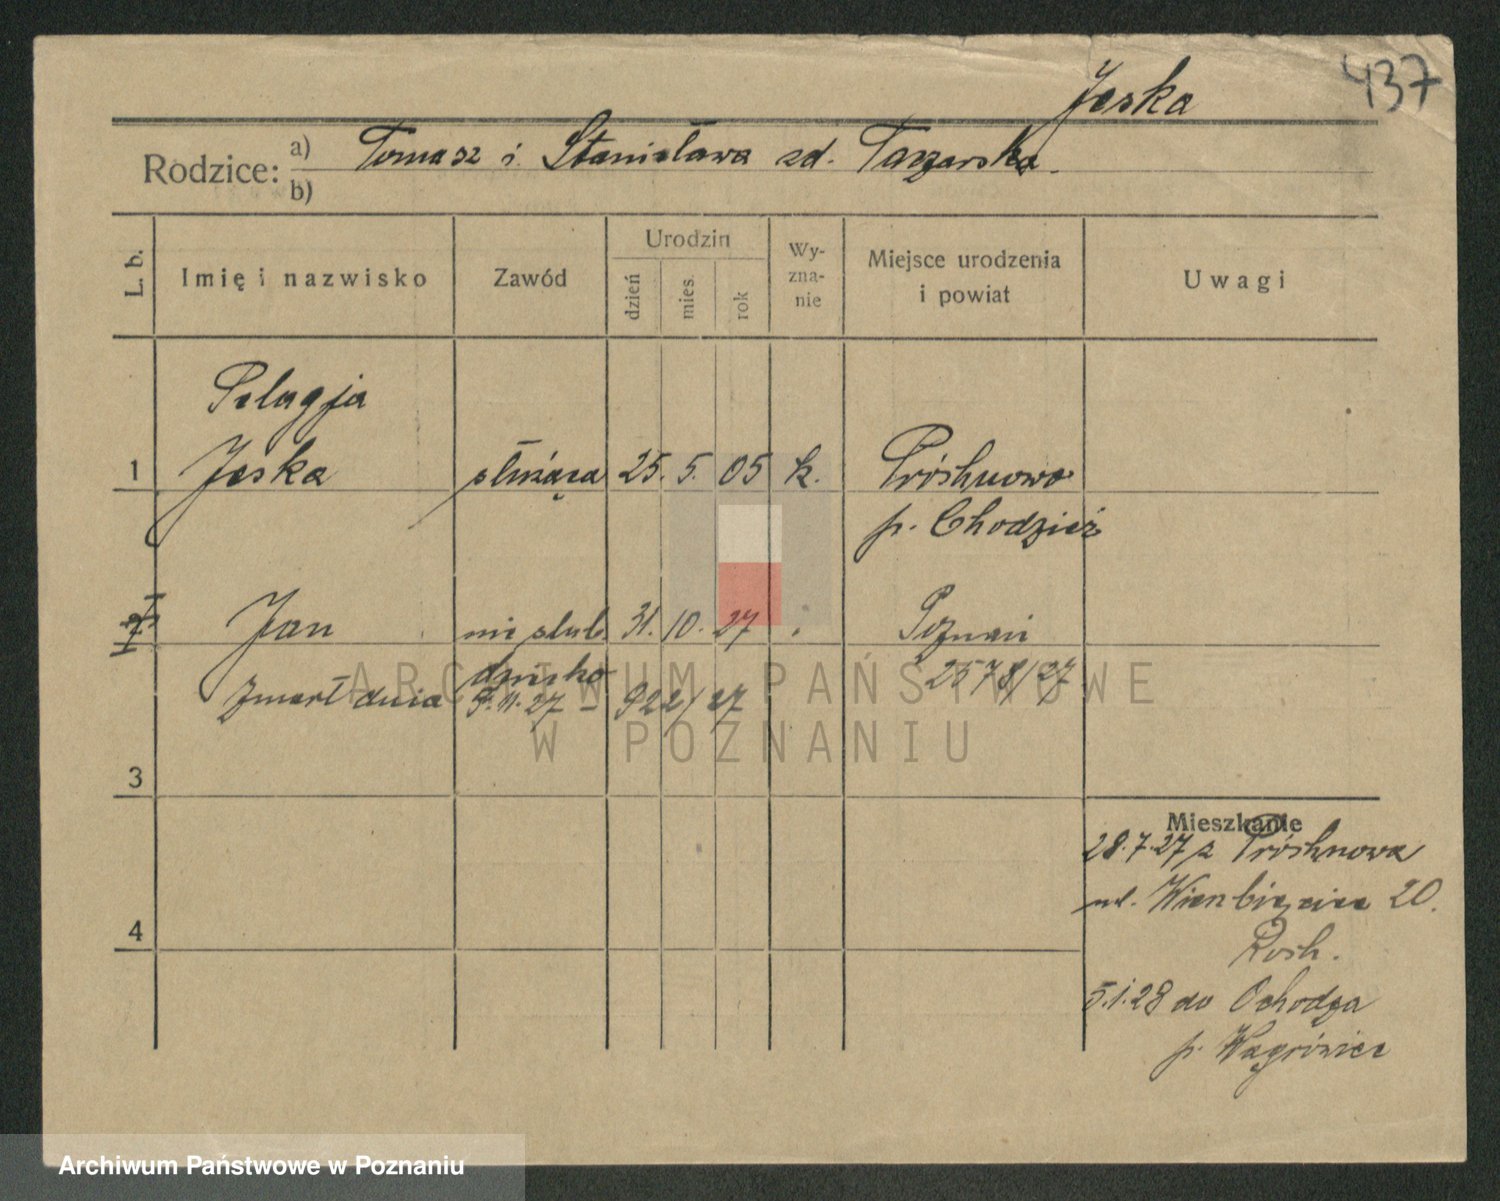 437
Jeska
Rodzice: a) Tomasz i. Stanisława zd. Tazzarska.
b)
L. b. Imię i nazwisko Zawód Urodzin dzień mies. rok Wy-zna-nie Miejsce urodzenia i powiat Uwagi
Pelagja
1 Jeska służąca 25. 5. 05 k. Próchnowo
p. Chodzież
Jan nie ślub. 31. 10. 27 Poznań
dziecko 2578/27
Zmarł dnia 9.11.27 – 922/27
3
Mieszkanie
28.7.27 z Próchnowa
4 ul. Wierzbięcice 20.
5.1.28 do Ochodza
p. Wągrówiec
ARCHIWUM PAŃSTWOWE
W POZNANIU
Archiwum Państwowe w Poznaniu